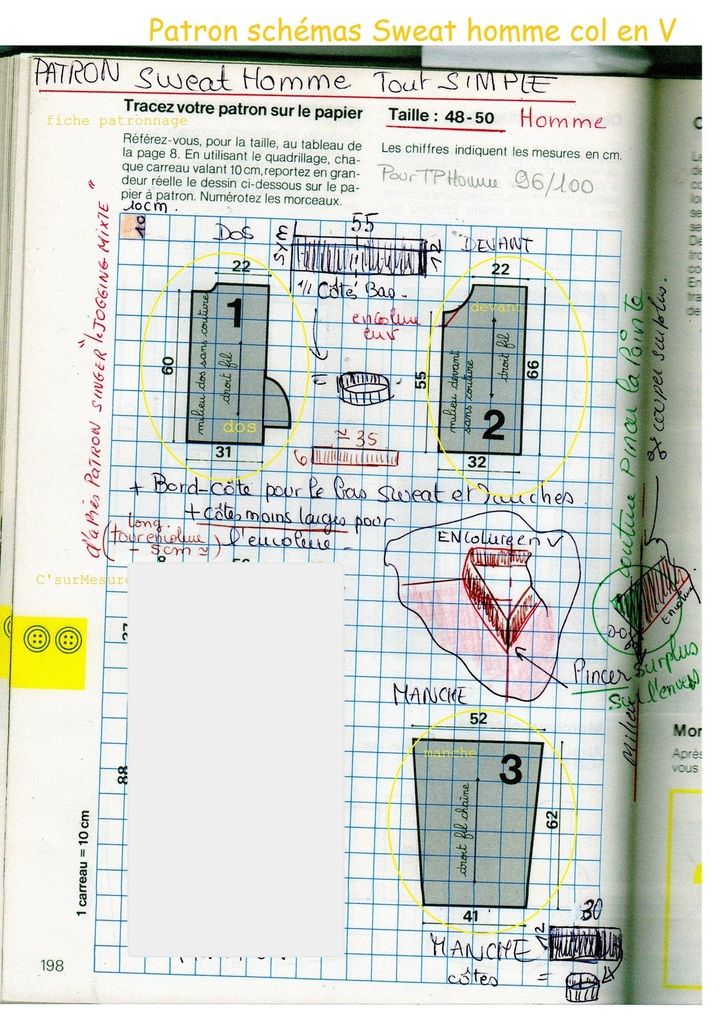 Patron schémas Sweat homme col en V
PATRON Sweat Homme Tout SIMPLE
Tracez votre patron sur le papier
Taille : 48-50 Homme
fiche patronnage
Référez-vous, pour la taille, au tableau de
la page 8. En utilisant le quadrillage, cha-
que carreau valant 10 cm, reportez en gran-
deur réelle le dessin ci-dessous sur le pa-
pier à patron. Numérotez les morceaux.
Les chiffres indiquent les mesures en cm.
Pour TP Homme 96/100
10cm.
10
d'après PATRON SINGER "JOGGING MIXTE"
DOS
SYM
55
12
DEVANT
22
1/1 Côtes Bas.
22
1
milieu dos sans couture
droit fil
60
dos
31
encolure
en V
=
≃ 35
6
devant
milieu devant
sans couture
droit fil
55
66
2
32
+ Bord-côte pour le bas sweat et manches.
+ côtes moins larges pour
l'encolure
(long.
tour encolure
- 5cm ≃)
C'surMesure
ENCOLURE en V
couture Pincer la Pointe
recouper surplus.
Encolure
Pincer surplus
sur l'envers
Milieu
MANCHE
52
manche
3
droit fil chaîne
62
41
88
1 carreau = 10 cm
MANCHE
côtes
12
30
=
198
Mon
Après
vous